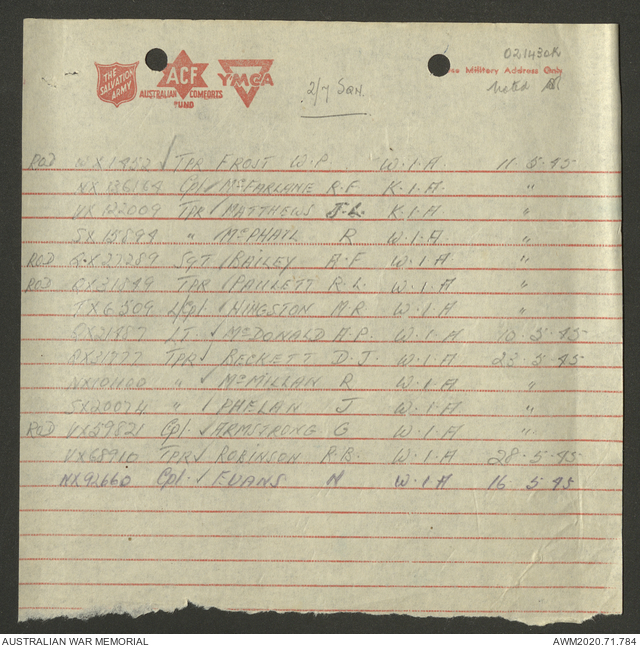 THE SALVATION ARMY
ACF
AUSTRALIAN COMFORTS FUND
YMCA
2/7 SQN.
021430K
Use Military Address Only
Noted
ROD WX1452 ✓ TPR FROST W.P. W.I.A 11.5.45
NX136134 Cpl ✓ McFARLANE R.F. K.I.A. "
VX122009 TPR ✓ MATTHEWS J.L. K.I.A "
SX15894 " ✓ McPHAIL R W.I.A "
ROD QX27289 SGT ✓ BAILEY A.F W.I.A "
ROD QX31849 TPR ✓ PAULETT R.L. W.I.A "
TX6509 L/Cpl ✓ HINGSTON M.R. W.I.A "
QX21957 LT. ✓ McDONALD A.P. W.I.A 10.5.45
QX31777 TPR ✓ BECKETT D.J. W.I.A 23.5.45
NX101100 " ✓ McMILLAN R W.I.A "
SX20074 " ✓ PHELAN J W.I.A "
ROD VX59821 Cpl. ✓ ARMSTRONG G W.I.A "
VX68910 TPR ✓ ROBINSON R.B. W.I.A 28.5.45
NX92660 Cpl. ✓ EVANS N W.I.A 16.5.45
AUSTRALIAN WAR MEMORIAL
AWM2020.71.784